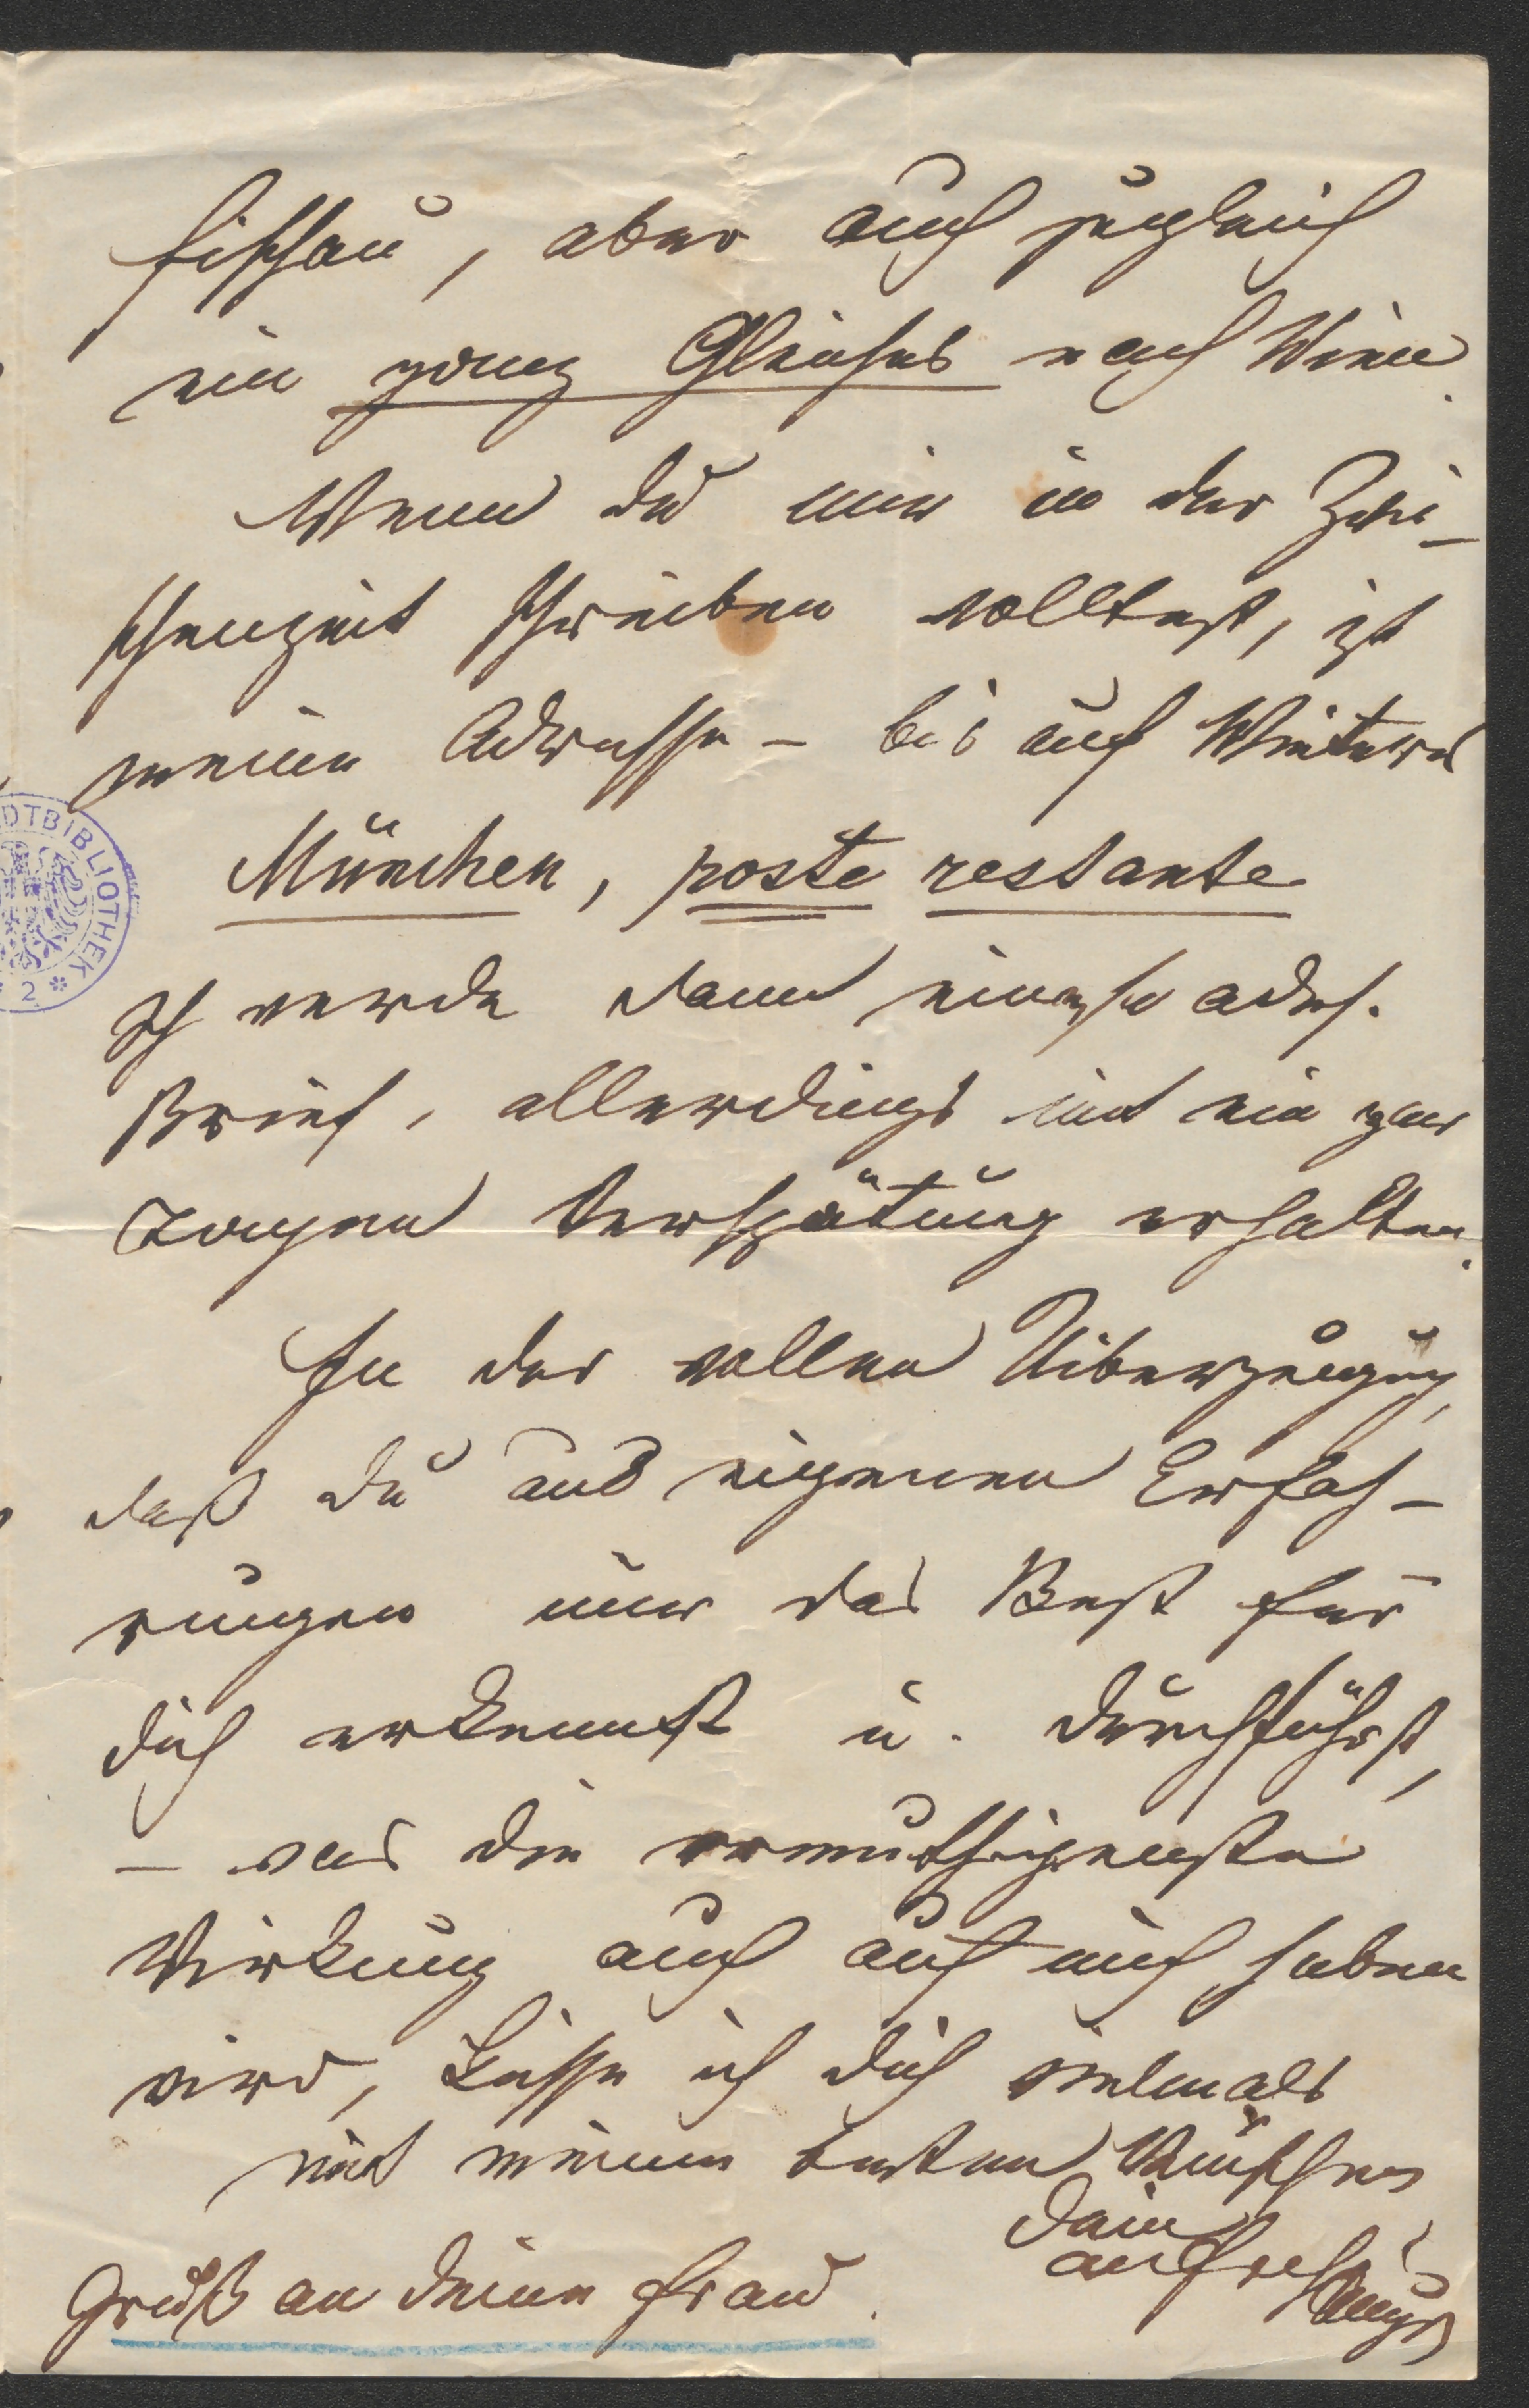 Fischau, aber auch zugleich
ein ganz Gleiches nach Wien.
Wenn du mir in der Zwi-
schenzeit schreiben wolltest, ist
meine Adresse – bis auf Weiteres
München, poste restante
Ich werde dann einen so adrs.
Brief, allerdings mit ein paar
Tagen Verspätung erhalten.
In der vollen Überzeugung,
daß du aus eigenen Erfah-
rungen nur das Best für
dich erkennst u. durchführst,
– was die ermuthigenste
Wirkung auch auf mich haben
wird, küsse ich dich vielmals
mit meinen besten Wünschen
Dein
Gruß an deine Frau.
STADTBIBLIOTHEK * 2 *